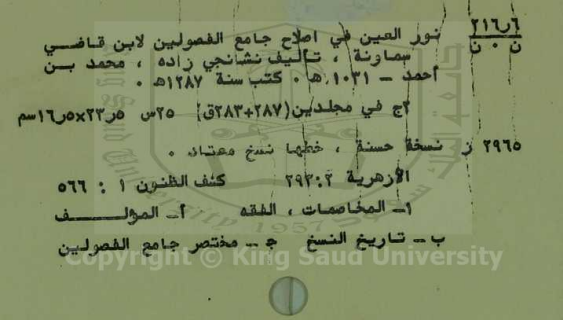 ٢١٦ر٦
ن ٠ ن
نور العين في اصلاح جامع الفصولين لابن قاضي
سماونة ، تأليف نشانجي زاده ، محمد بن
أحمد – ١٠٣١هـ ٠ كتب سنة ١٢٨٧هـ ٠
٢ج في مجلدين (٢٨٧+٢٨٣ق) ٢٥س ٥ر٢٣×٥ر١٦سم
٢٩٦٥ ز نسخة حسنة ، خطها نسخ معتاد ٠
الأزهرية ٢:٢٩٢ كشف الظنون ١ : ٥٦٦
١ـ المخاصمات ، الفقه أـ المؤلف
ب ـ تاريخ النسخ ج ـ مختصر جامع الفصولين
Copyright © King Saud University
1957